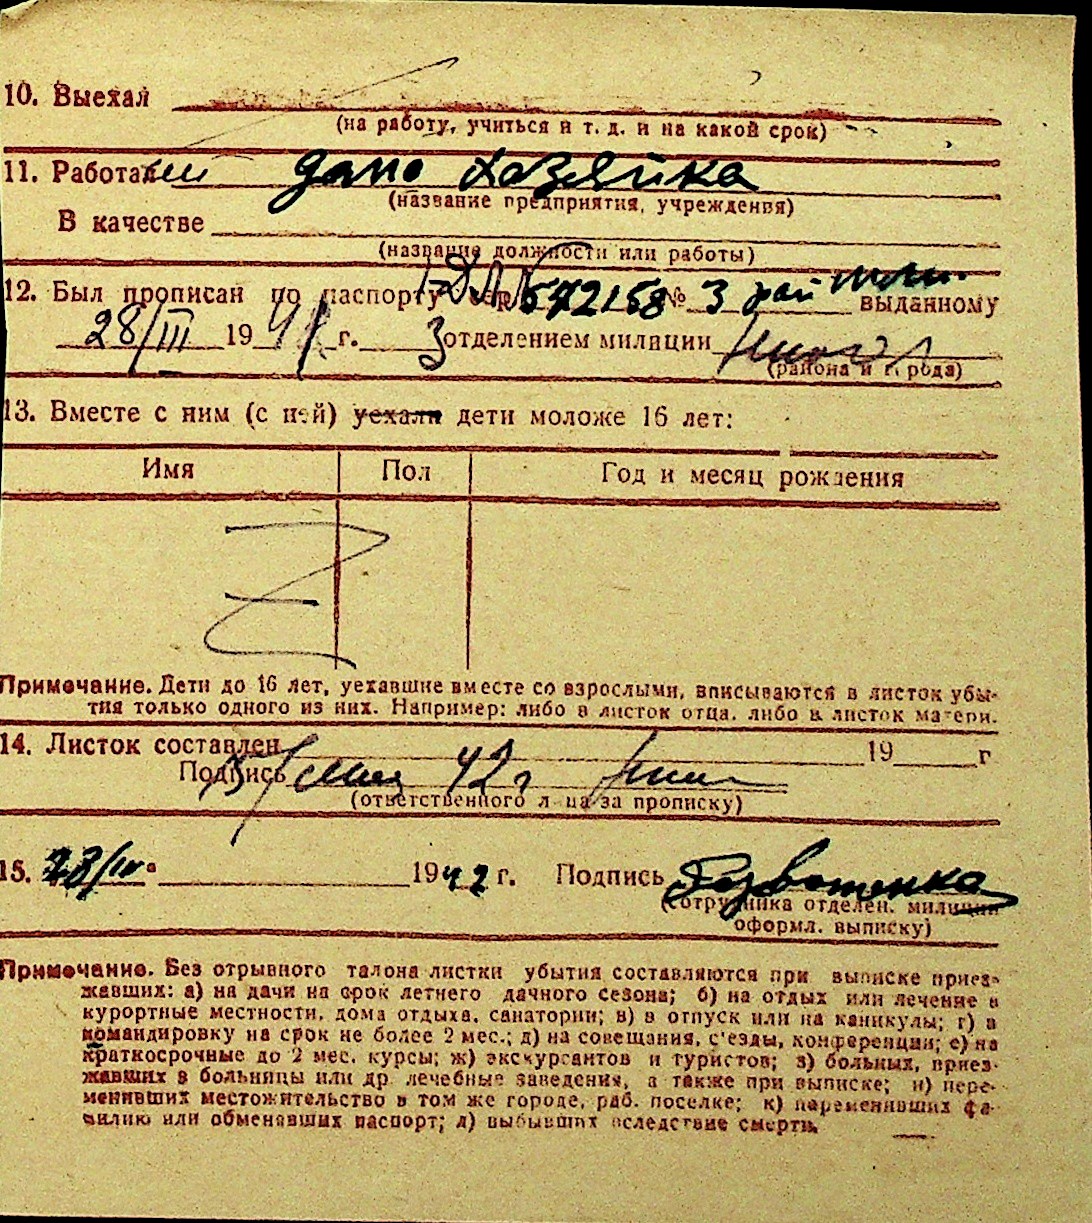 10. Выехал
(на работу, учиться и т. д. и на какой срок)
11. Работал дано хозяйка
(название предприятия, учреждения)
В качестве
(название должности или работы)
12. Был прописан по паспорту сер. 572158 № 3 рай выданному
28/III 1941 г. 3 отделением милиции
(района и города)
13. Вместе с ним (с ней) уехали дети моложе 16 лет:
Имя Пол Год и месяц рождения
Примечание. Дети до 16 лет, уехавшие вместе со взрослыми, вписываются в листок убы-
тия только одного из них. Например: либо в листок отца, либо в листок матери.
14. Листок составлен 19 г
Подпись 5/ 42 г
(ответственного лица за прописку)
15. 28/IV 1942 г. Подпись
(сотрудника отделен. милиции
оформл. выписку)
Примечание. Без отрывного талона листки убытия составляются при выписке приез-
жавших: а) на дачи на срок летнего дачного сезона; б) на отдых или лечение в
курортные местности, дома отдыха, санатории; в) в отпуск или на каникулы; г) в
командировку на срок не более 2 мес.; д) на совещания, с'езды, конференции; е) на
краткосрочные до 2 мес. курсы; ж) экскурсантов и туристов; з) больных, приез-
жавших в больницы или др. лечебные заведения, а также при выписке; и) пере-
менивших местожительство в том же городе, раб. поселке; к) переменивших фа-
милию или обменявших паспорт; л) выбывших вследствие смерти.